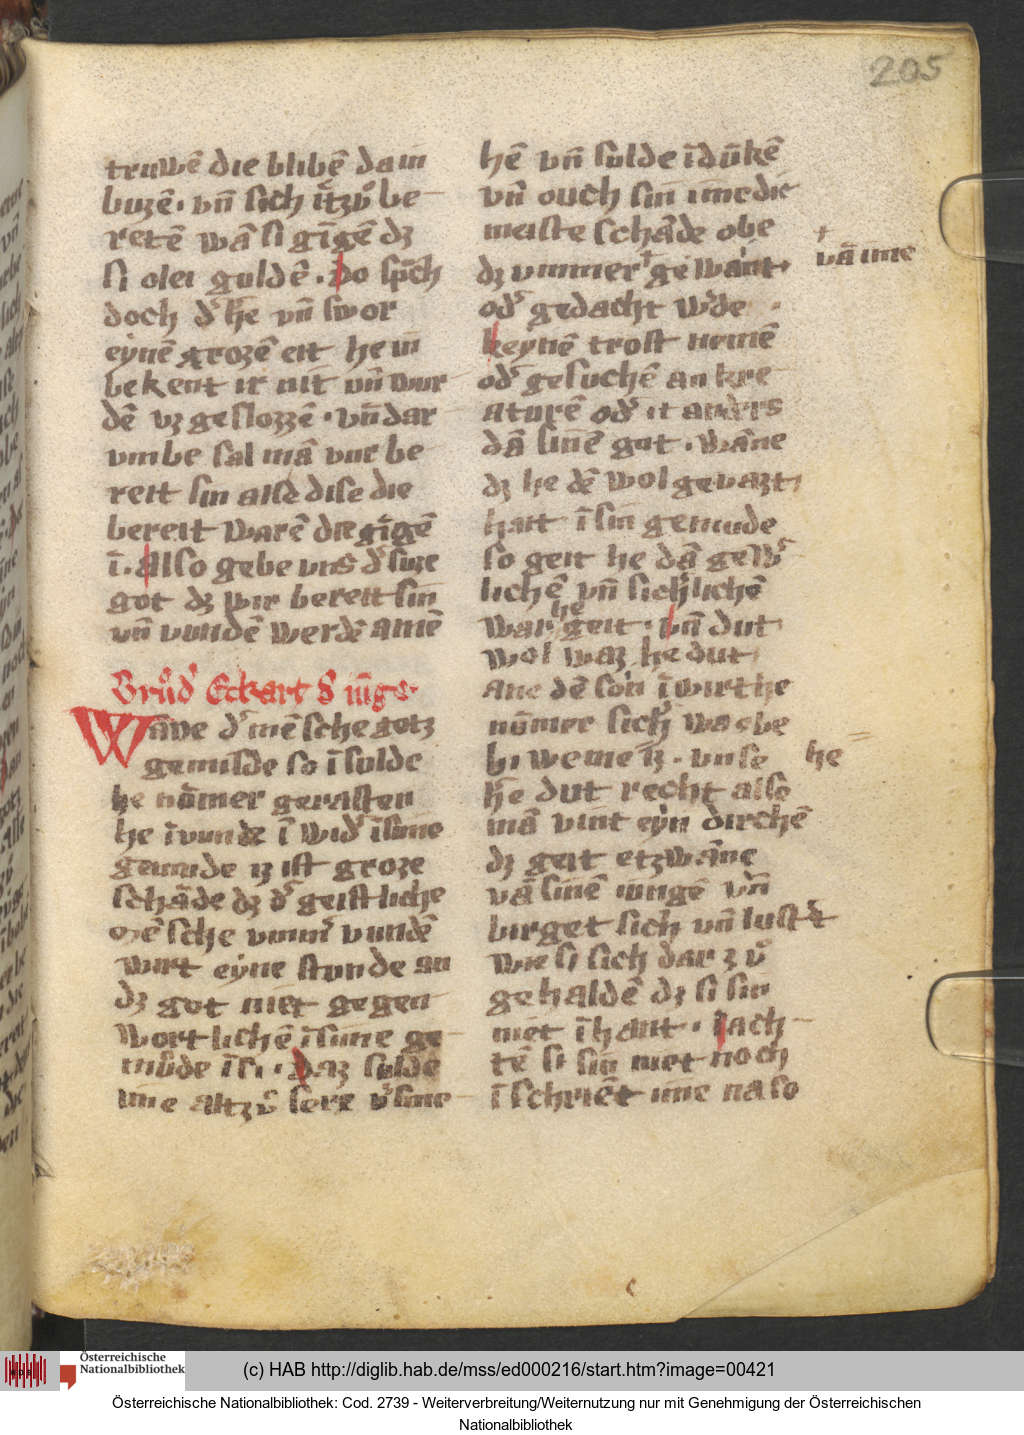 205
truwē die blibē da in
buzē · vn̄ sich ītzv̊ be
retē wā si gīgē dʒ
si olei guldē · Do sp̄ch
doch d' h̄e vn̄ swor
eynē grozē eit he in
bekent ir nit vn̄ wur
dē vʒ geslozzē · vn̄ dar
vmbe sal mā vur be
reit sin alse dise die
bereit warē die gīgē
ī · Also gebe vns d' suze
got dʒ wir bereit sin
vn̄ vundē werdē amē
Brůd' Eckart d' iūge ·
Wāne d' mēsche gotʒ
gemisde so ī solde
he nūmer gerasten
he īvunde ī wid' ī sime
gemude iʒ ist groze
schāde dʒ d' geistliche
mēsche vmm' vundē
wirt eyne stunde an
dʒ got niet gegen
wortlichē ī sime ge
můde ī si · Daʒ solde
ime altzů sere v' sme
hē vn̄ solde ī dūkē
vn̄ ouch sin ime die
meiste schāde obe
dʒ vmmer ge want
vā ime
od' gedacht w'de
keynē trost nemē
od' gesuchē an kre
aturē od' it anders
dā sinē got · wāne
dʒ he dē wol gevazt
hait ī sin gemude
so geit he dā gew'
lichē vn̄ sich'lichē
war he geit · vn̄ dut
wol waʒ he dut
ane dē son ī wirt he
nūmer sich' wa obe
bi weme iʒ · vnse he
h̄e dut recht also
mā vint eyn dirchē
dʒ geit etzwāne
vā sinē iungē vn̄
birget sich vn̄ lust't
wie si sich dar zv̊
gehaldē dʒ si sin
niet ī hant · Iach
tē si sin niet noch
ī schriēt ime na so
Österreichische
Nationalbibliothek
(c) HAB http://diglib.hab.de/mss/ed000216/start.htm?image=00421
Österreichische Nationalbibliothek: Cod. 2739 - Weiterverbreitung/Weiternutzung nur mit Genehmigung der Österreichischen
Nationalbibliothek